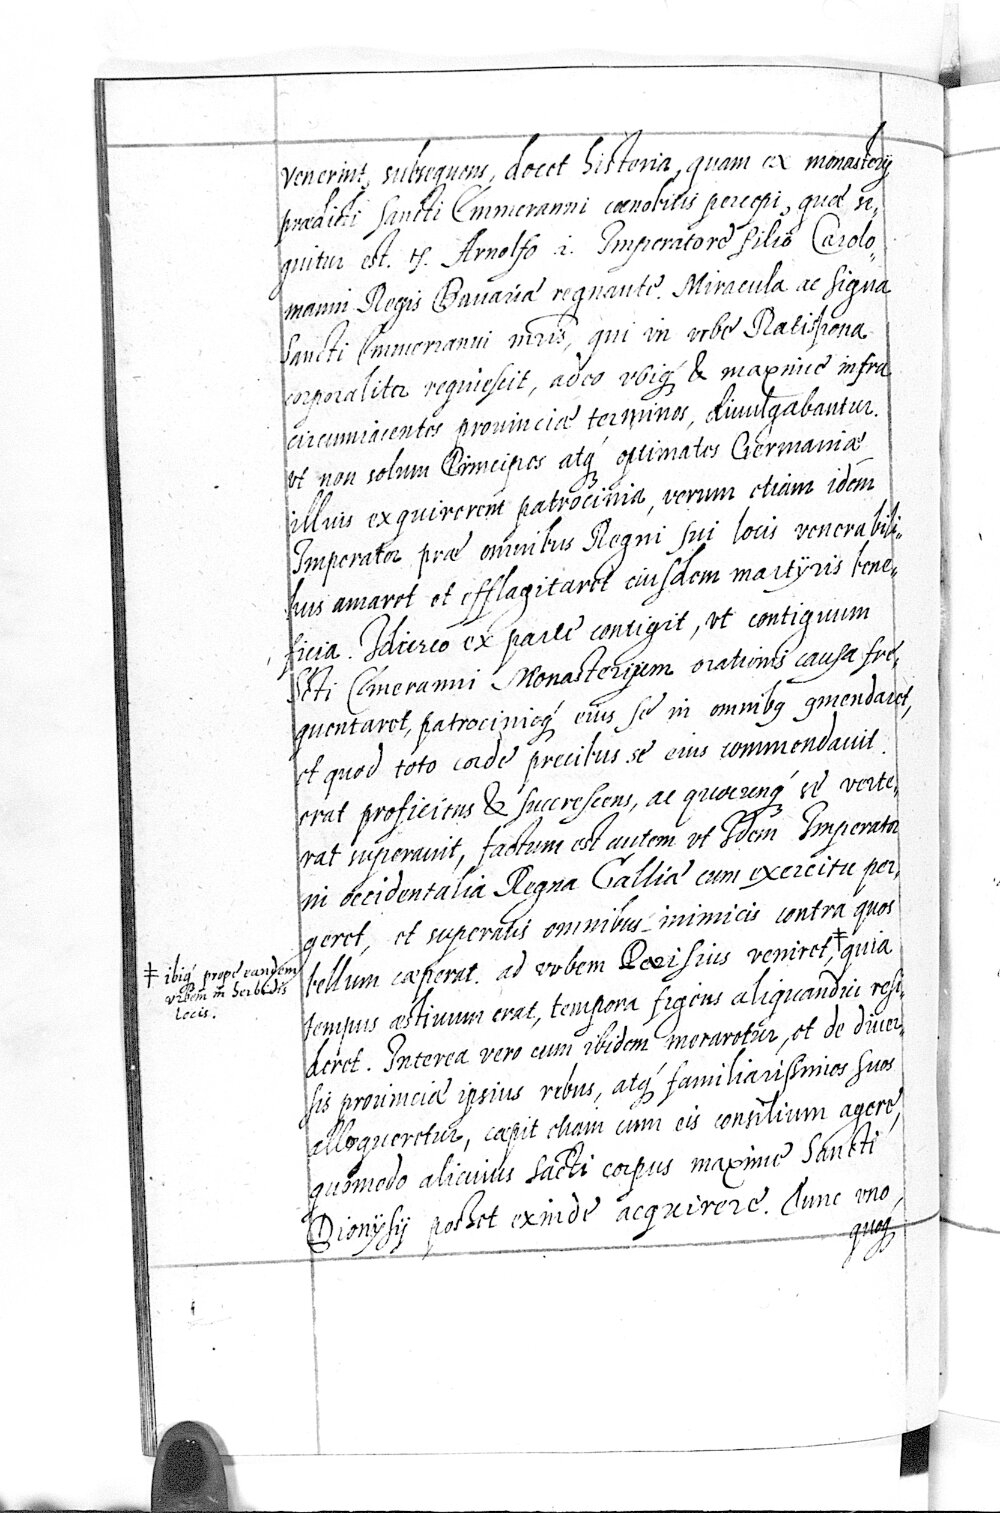 venerint, subsequens, docet historia, quam ex monasterij
prædicti Sancti Emmeranni cœnobitis percepi, quæ se,
quitur est. Arnolfo .i. Imperatore filio Carolo,
manni Regis Bauariæ regnante. Miracula ac signa
Sancti Emmeranni mris, qui in vrbe Ratispona
corporaliter requiescit, adeo vbiq́ & maxime infra
circumiacentes prouinciæ terminos, diuulgabantur.
vt non solum Principes atq́ optimates Germaniæ
illius exquirerent patrocinia, verum etiam idem
Imperator præ omnibus Regni sui locis venerabili,
bus amaret et efflagitaret eiusdem martÿris bene,
ficia. Idcirco ex parte contigit, vt contiguum
Scti Emeranni Monasterium orationis causa fre,
quentaret, patrocinijq́ eius se in omnibq gmendaret,
et quod toto corde precibus se eius commendauit.
erat proficiens & succrescens, ac quocunq́ se verte,
rat superauit, factum est autem vt Idem Imperator
in occidentalia Regna Galliæ cum exercitu per,
geret, et superatis omnibus inimicis contra quos
bellum cœperat. ad vrbem Parisius veniret,‡ quia
tempus æstiuum erat, tempora figens aliquandiu resi,
deret. Interea vero cum ibidem moraretur, et de diuer,
sis prouinciæ ipsius rebus, atq́ familiarissimos suos
alloqueretur, cœpit etiam cum eis consilium agere,
quomodo alicuius Sacti corpus maxime Sancti
Dionÿsij posset exinde acquirere. Tunc vno,
quoq́
‡ ibiq́ prope eandem
vrbem in herbidis
locis.